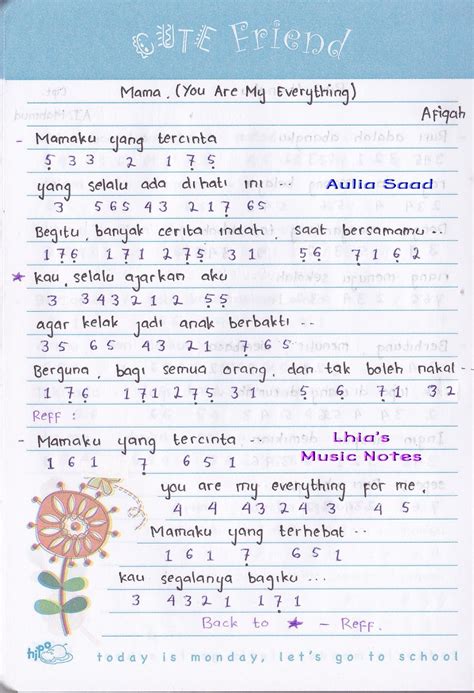 CUTE Friend
Mama. (You Are My Everything)
Afiqah
- Mamaku yang tercinta
5 3 3 2 1 7 5
yang selalu ada dihati ini ...
Aulia Saad
3 5 6 5 4 3 2 1 7 6 5
Begitu, banyak cerita indah, saat bersamamu...
1 7 6 1 7 1 2 7 5 3 1 5 6 7 1 6 2
★ kau, selalu ajarkan aku
3 3 4 3 2 1 2 5 5
agar kelak jadi anak berbakti ...
3 5 6 5 4 3 2 1 7 6 5
Berguna, bagi semua orang, dan tak boleh nakal...
1 7 6 1 7 1 2 7 5 3 5 6 7 1 3 2
Reff :
- Mamaku yang tercinta...
Lhia's
Music Notes
1 6 1 7 6 5 1
you are my everything for me,
4 4 4 3 2 4 3 4 5
Mamaku yang terhebat ...
1 6 1 7 6 5 1
kau segalanya bagiku ...
3 4 3 2 1 1 7 1
Back to ★ - Reff.
hipo
today is monday, let's go to school